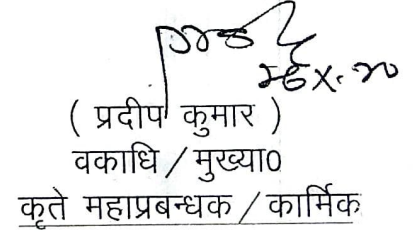 ( प्रदीप कुमार )
वकाधि / मुख्या0
कृते महाप्रबन्धक / कार्मिक